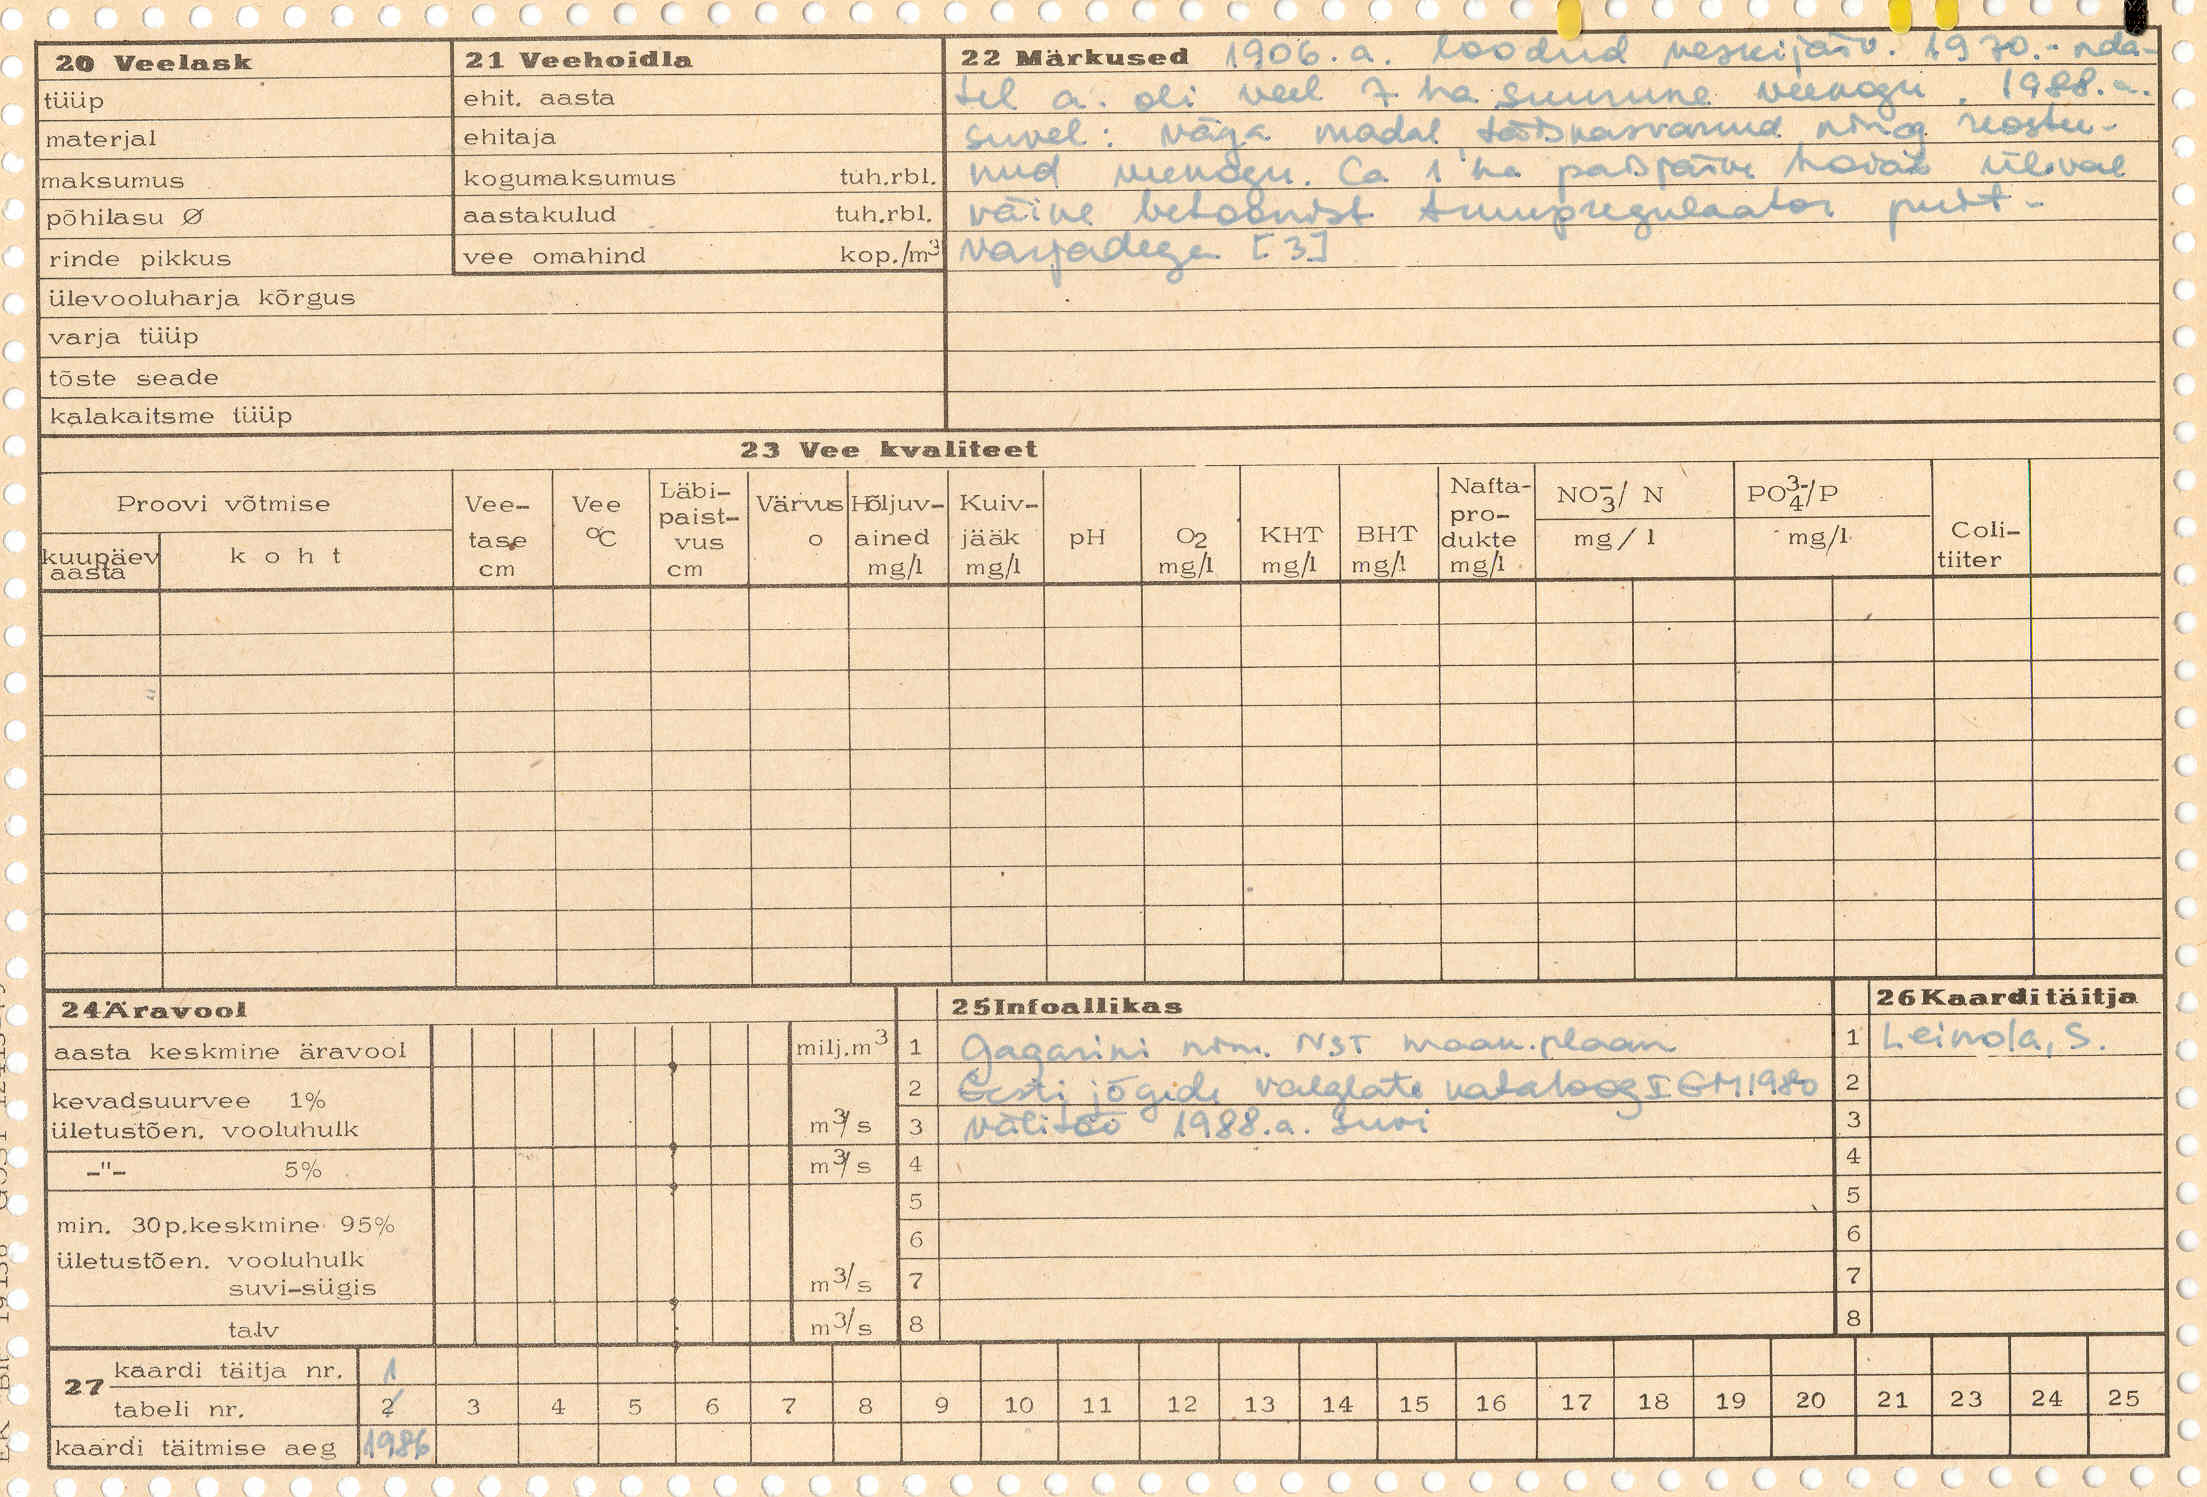 20 Veelask
tüüp
materjal
maksumus
põhilasu Ø
rinde pikkus
ülevooluharja kõrgus
varja tüüp
tõste seade
kalakaitsme tüüp
21 Veehoidla
ehit. aasta
ehitaja
kogumaksumus tuh.rbl.
aastakulud tuh.rbl.
vee omahind kop./m³
22 Märkused 1906.a. loodud veskijärv. 1970.-nda-
tel a. oli veel 7 ha suurune veekogu. 1988.a.
suvel: väga madal, täiskasvanud ning reostu-
nud veekogu. Ca 1 ha paisjärve hoiab üleval
väike betoonist truupregulaator puit-
varjadega [3]
23 Vee kvaliteet
Proovi võtmise
kuupäev aasta
koht
Vee-tase cm
Vee °C
Läbi-paist-vus cm
Värvus o
Hõljuv-ained mg/l
Kuiv-jääk mg/l
pH
O2 mg/l
KHT mg/l
BHT mg/l
Nafta-pro-dukte mg/l
NO₃⁻/ N mg/l
PO₄³⁻/P mg/l
Coli-tiiter
24 Äravool
aasta keskmine äravool milj.m³
kevadsuurvee 1%
ületustõen. vooluhulk m³/s
-"- 5% m³/s
min. 30p.keskmine 95%
ületustõen. vooluhulk
suvi-sügis m³/s
talv m³/s
25 Infoallikas
1 Gagarini nim. NST maak. plaan
2 Eesti jõgede valglate kataloog I EM 1980
3 välitöö 1988.a. suvi
4
5
6
7
8
26 Kaardi täitja
1 Leinola, S.
2
3
4
5
6
7
8
27
kaardi täitja nr. 1
tabeli nr. 2 3 4 5 6 7 8 9 10 11 12 13 14 15 16 17 18 19 20 21 23 24 25
kaardi täitmise aeg 1986